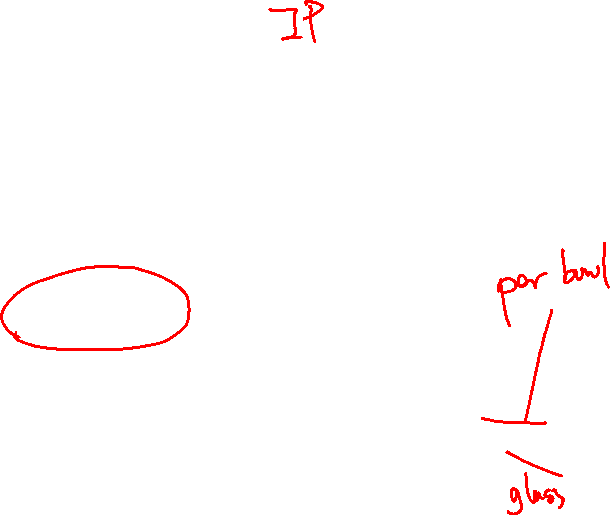 IP
per bowl
glass